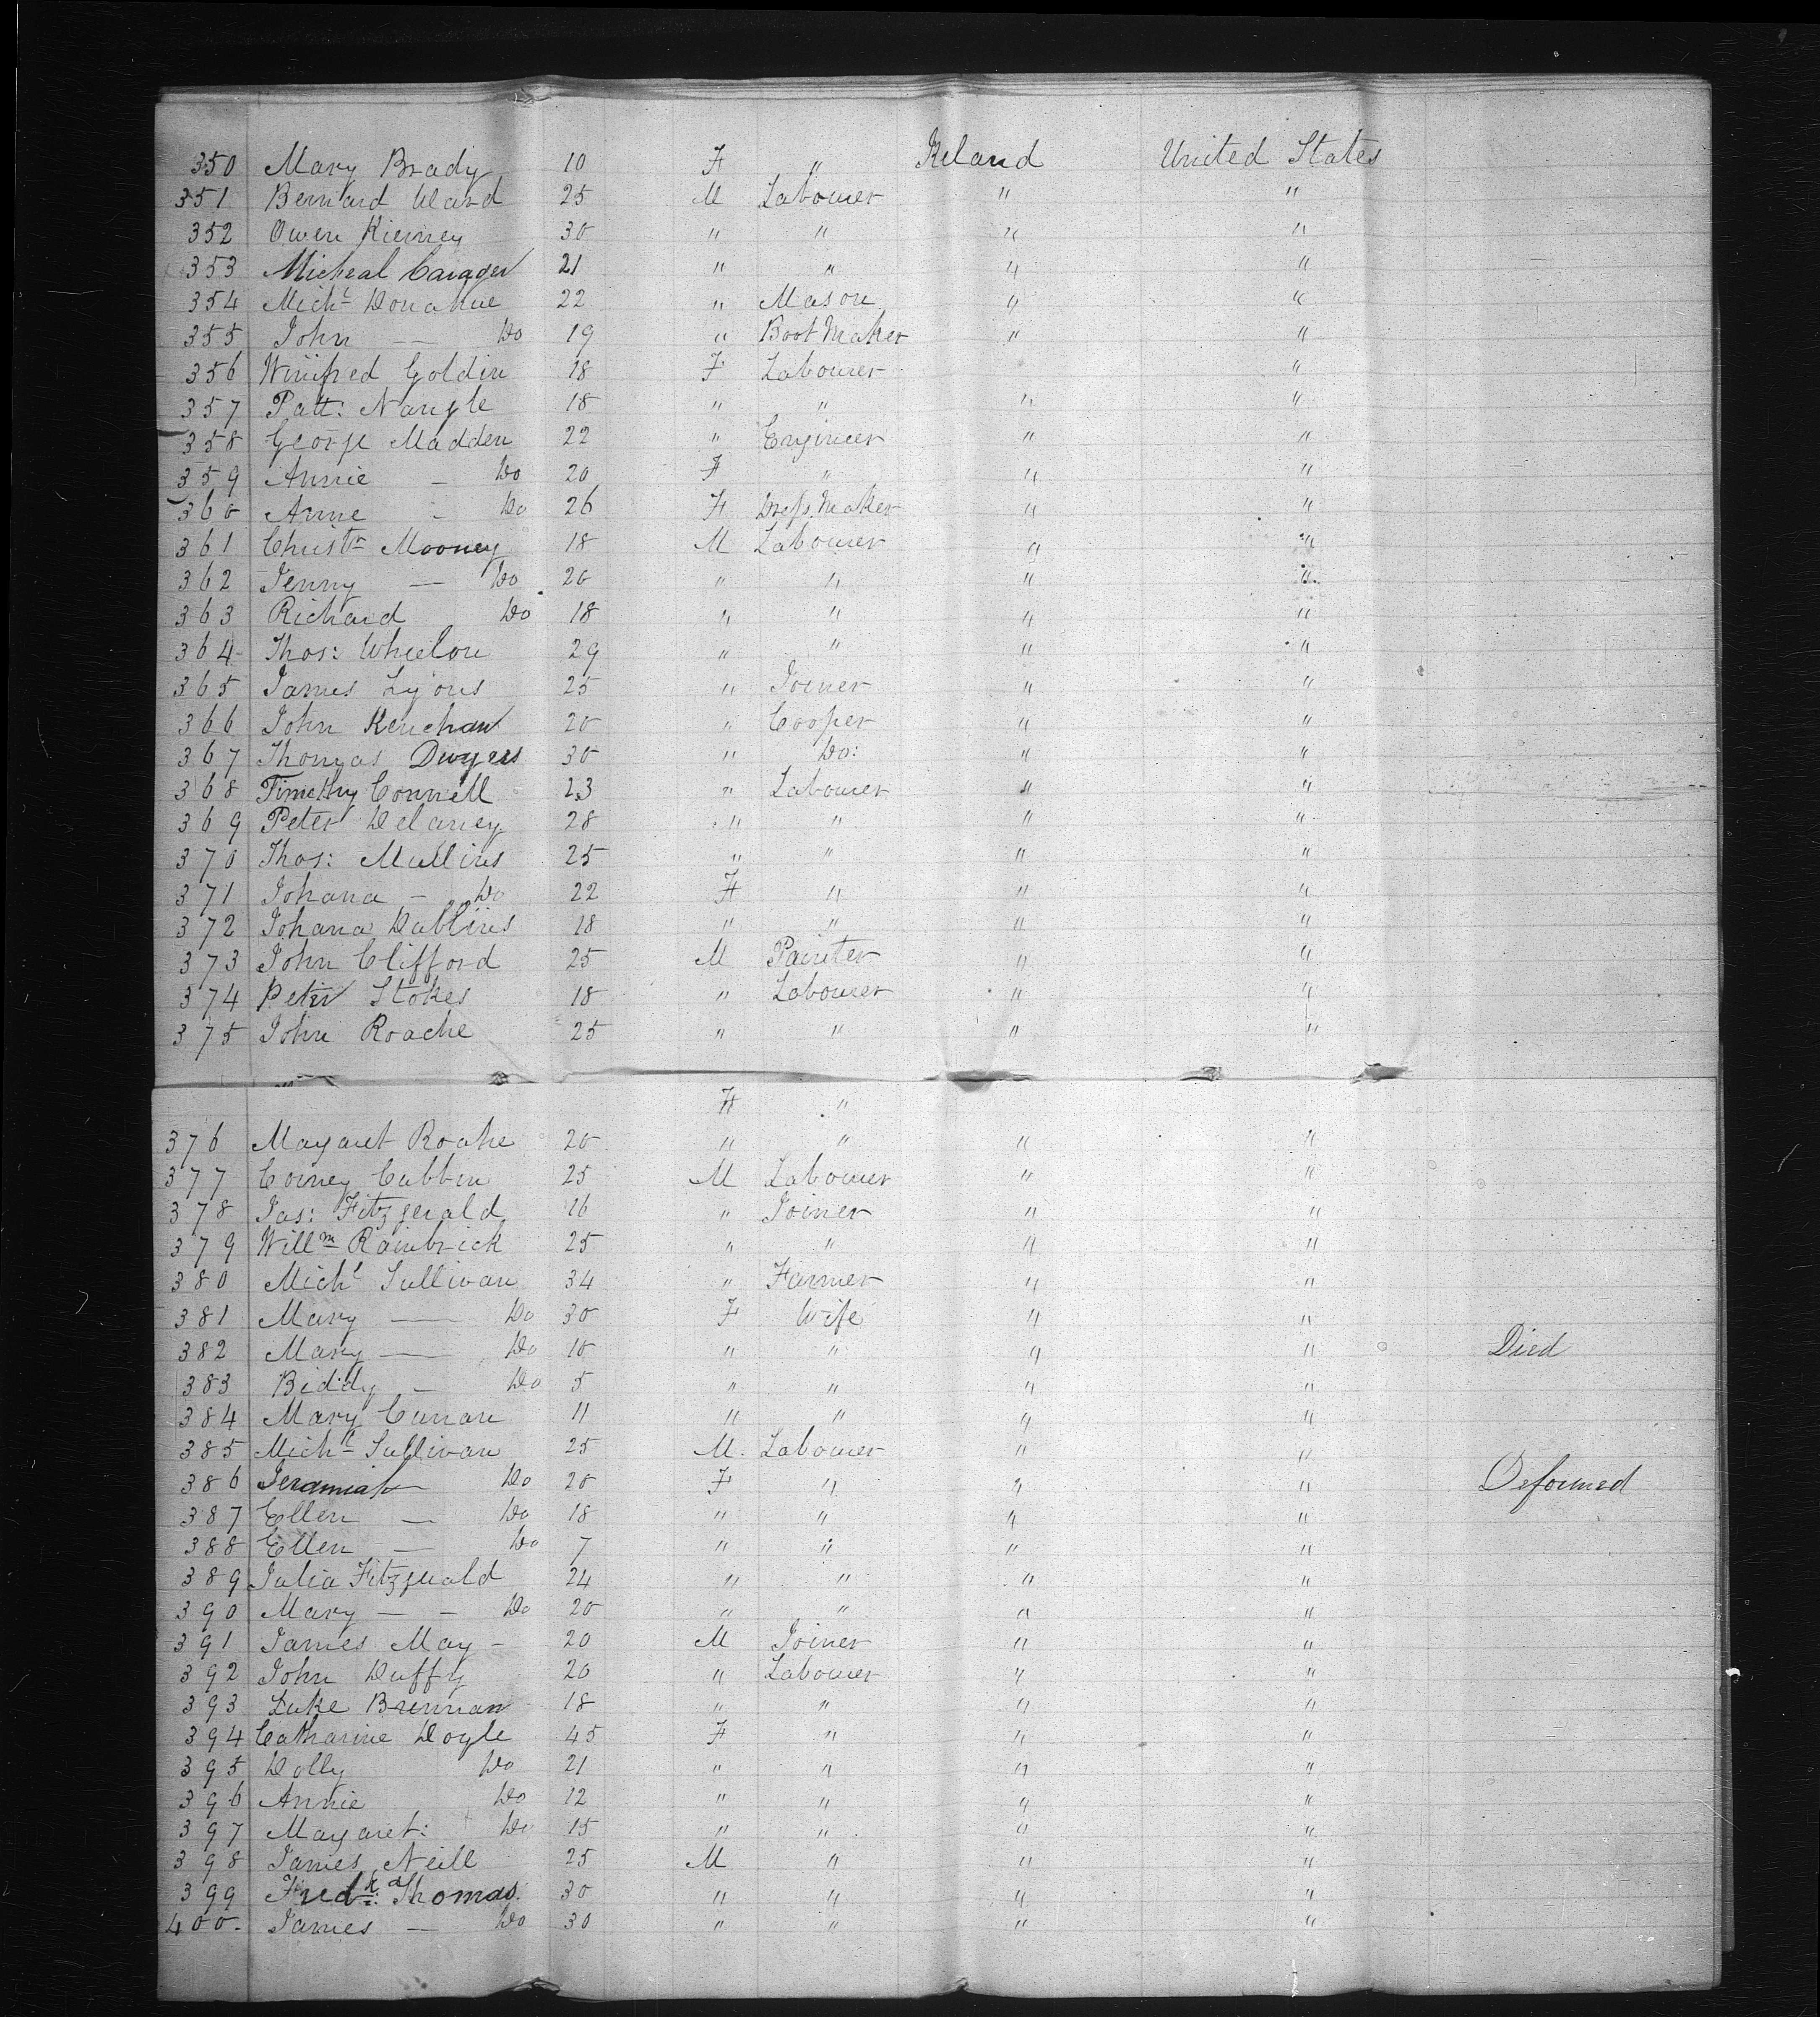 350 Mary Brady 10 F " Ireland United States
351 Bernard Ward 25 M Labourer " "
352 Owen Kierney 30 " " " "
353 Micheal Carager 21 " " " "
354 Michl Donahue 22 " Mason " "
355 John — Do 19 " Boot Maker " "
356 Winifred Goldin 18 F Labourer "
357 Patt: Nangle 18 " " " "
358 George Madden 22 " Engineer " "
359 Annie — Do 20 F " " "
360 Anne - Do 26 F Dress Maker " "
361 Christr Mooney 18 M Labourer " "
362 Jenny — Do 20 " " " "
363 Richard Do 18 " " " "
364 Thos: Whelon 29 " " " "
365 James Lyons 25 " Joiner " "
366 John Kenehan 20 " Cooper " "
367 Thomas Dwyers 30 " Do: " "
368 Timothy Connell 23 " Labourer " "
369 Peter Delaney 28 " " " "
370 Thos: Mullins 25 " " " "
371 Johana — Do 22 F " " "
372 Johana Dablins 18 " " " "
373 John Clifford 25 M Painter " "
374 Peter Stokes 18 " Labourer " "
375 John Roache 25 " " " "
F "
376 Magaret Roahe 20 " " " "
377 Corney Cubbin 25 M Labourer " "
378 Jas: Fitzgerald 16 " Joiner " "
379 Willm Rainbrick 25 " " " "
380 Michl Sullivan 34 " Farmer " "
381 Mary — Do 30 F Wife " "
382 Mary — Do 10 " " " " Died
383 Biddy — Do 5 " " " "
384 Mary Cunan 11 " " " "
385 Michl Sullivan 25 M. Labourer " "
386 Jeramiah Do 20 F " " " Deformed
387 Ellen — Do 18 " " " "
388 Ellen — Do 7 " " " "
389 Julia Fitzguald 24 " " " "
390 Mary — — Do 20 " " " "
391 James May - 20 M Joiner " "
392 John Duffy 20 " Labourer " "
393 Luke Brennan 18 " " " "
394 Catharine Doyle 45 F " " "
395 Dolly Do 21 " " " "
396 Annie Do 12 " " " "
397 Magaret: Do 15 " " " "
398 James Neill 25 M " " "
399 Fredk: Thomas. 30 " " " "
400- James — Do 30 " " " "